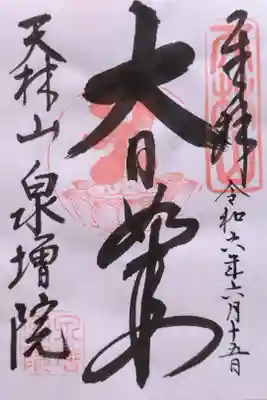 奉拝
令和六年六月十五日
大日如来
天林山
泉増院